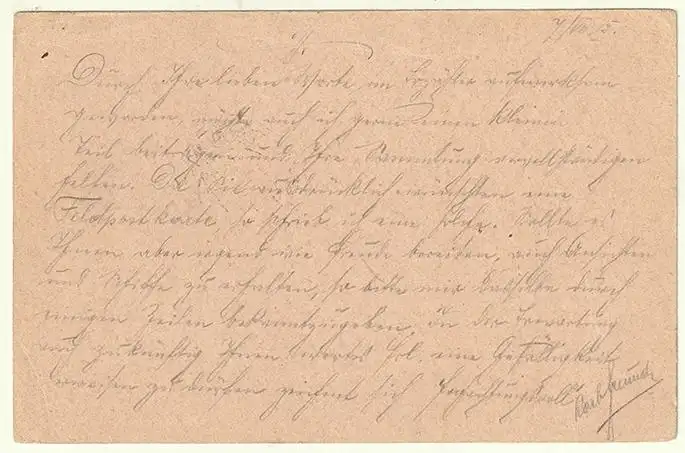 7/VII 15.
Durch Ihre lieben Worte im Erzähler aufmerksam
geworden, möchte auch ich gerne einen kleinen
Teil beitragen und Ihre Sammlung vervollständigen
helfen. Da Sie ausdrücklich wünschten eine
Feldpostkarte, so schrieb ich eine solche. Sollte es
Ihnen aber irgend wie Freude bereiten, auch Ansichten
und solche zu erhalten, so bitte mir dasselbe durch
einigen Zeilen bekanntzugeben. In der Erwartung
auch zukünftig Ihnen eine Gefälligkeit
erweisen zu dürfen zeichnet sich hochachtungsvoll